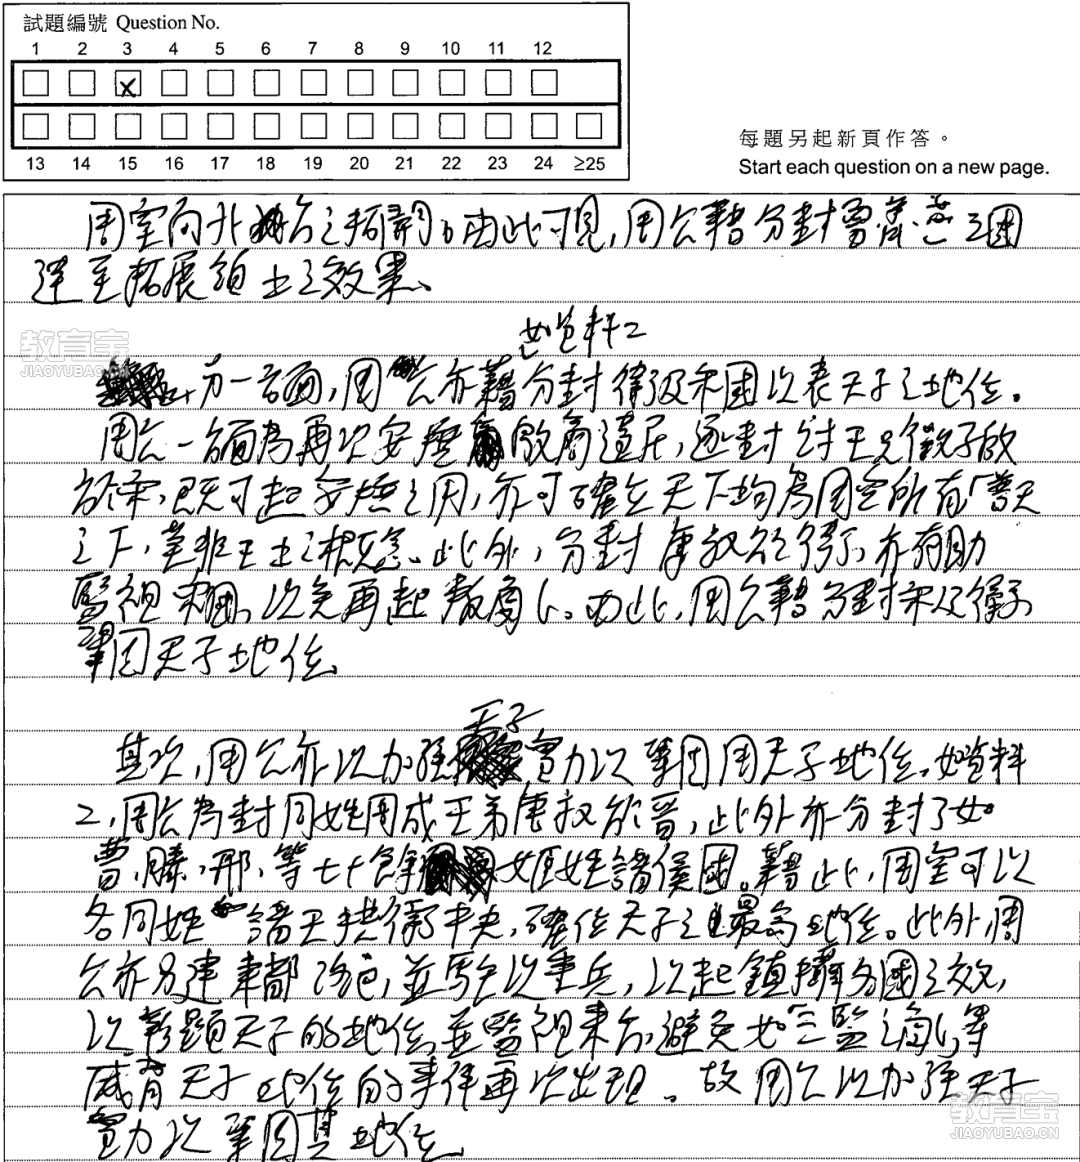 試題編號 Question No.
1 2 3 4 5 6 7 8 9 10 11 12
13 14 15 16 17 18 19 20 21 22 23 24 ≥25
每題另起新頁作答。
Start each question on a new page.
周室向北方之拓闢。由此可見,周公藉分封魯、齊、燕三國
達至拓展領土之效果。
教育宝
JIAOYUBAO.CN
如資料二
另一方面,周公亦藉分封衛及宋國以表天子之地位。
周公一方面為再次安撫殷商遺民,遂封紂王兄微子啟
於宋,既可起安撫之用,亦可確立天下均為周室所有「普天
之下,莫非王土」之概念。此外,分封康叔於衛,亦有助
監視宋國,以免再起叛亂。由此,周公藉分封宋及衛
鞏固天子地位
其次,周公亦以加強天子實力以鞏固周天子地位。如資料
2,周公為封同姓周成王弟唐叔於晉,此外亦分封了如
曹、滕、邢、等七十餘姬姓諸侯國。藉此,周室可以
各同姓諸王拱衛中央,確位天子之最高地位。此外,周
公亦另建東都洛邑,並駐以重兵,以起鎮攝各國之效,
以彰顯天子的地位並監視東方,避免如「三監之亂」等
威脅天子地位的事件再次出現。故周公以加強天子
實力以鞏固其地位
教育宝
JIAOYUBAO.CN